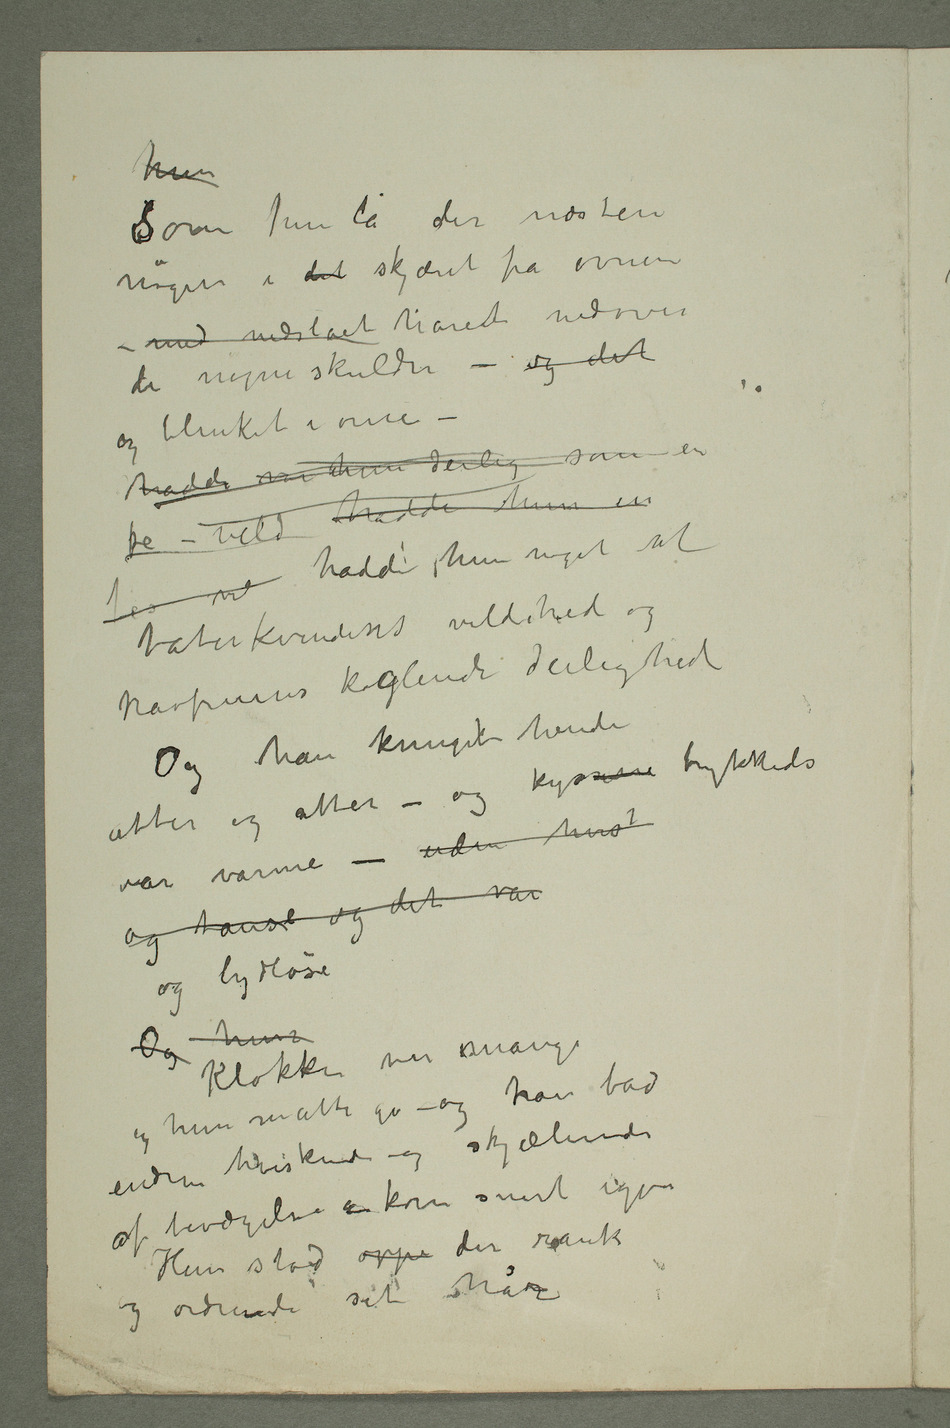 hun
Som hun lå der næsten
nögen i det skjæret fra ovnen
– med nedslaet håret nedover
de nøgne skuldre – og det
og blinket i øine –
hadde var hun deilig som en
fe – vild hadde hun en
hadde hun noget at
taterkvindens vildhed og
havfruens koglende deilighed
Og han knuget hende
atter og atter – og kyssene trykkeds
var varme – uden hvist
og tause og det var
og lydløse
Og hun
Klokken var mange
og hun måtte gå – og han bad
endnu hviskende og skjælvende
af bevægelse kom snart igjen
Hun stod oppe der rank
og ordnede sit hår